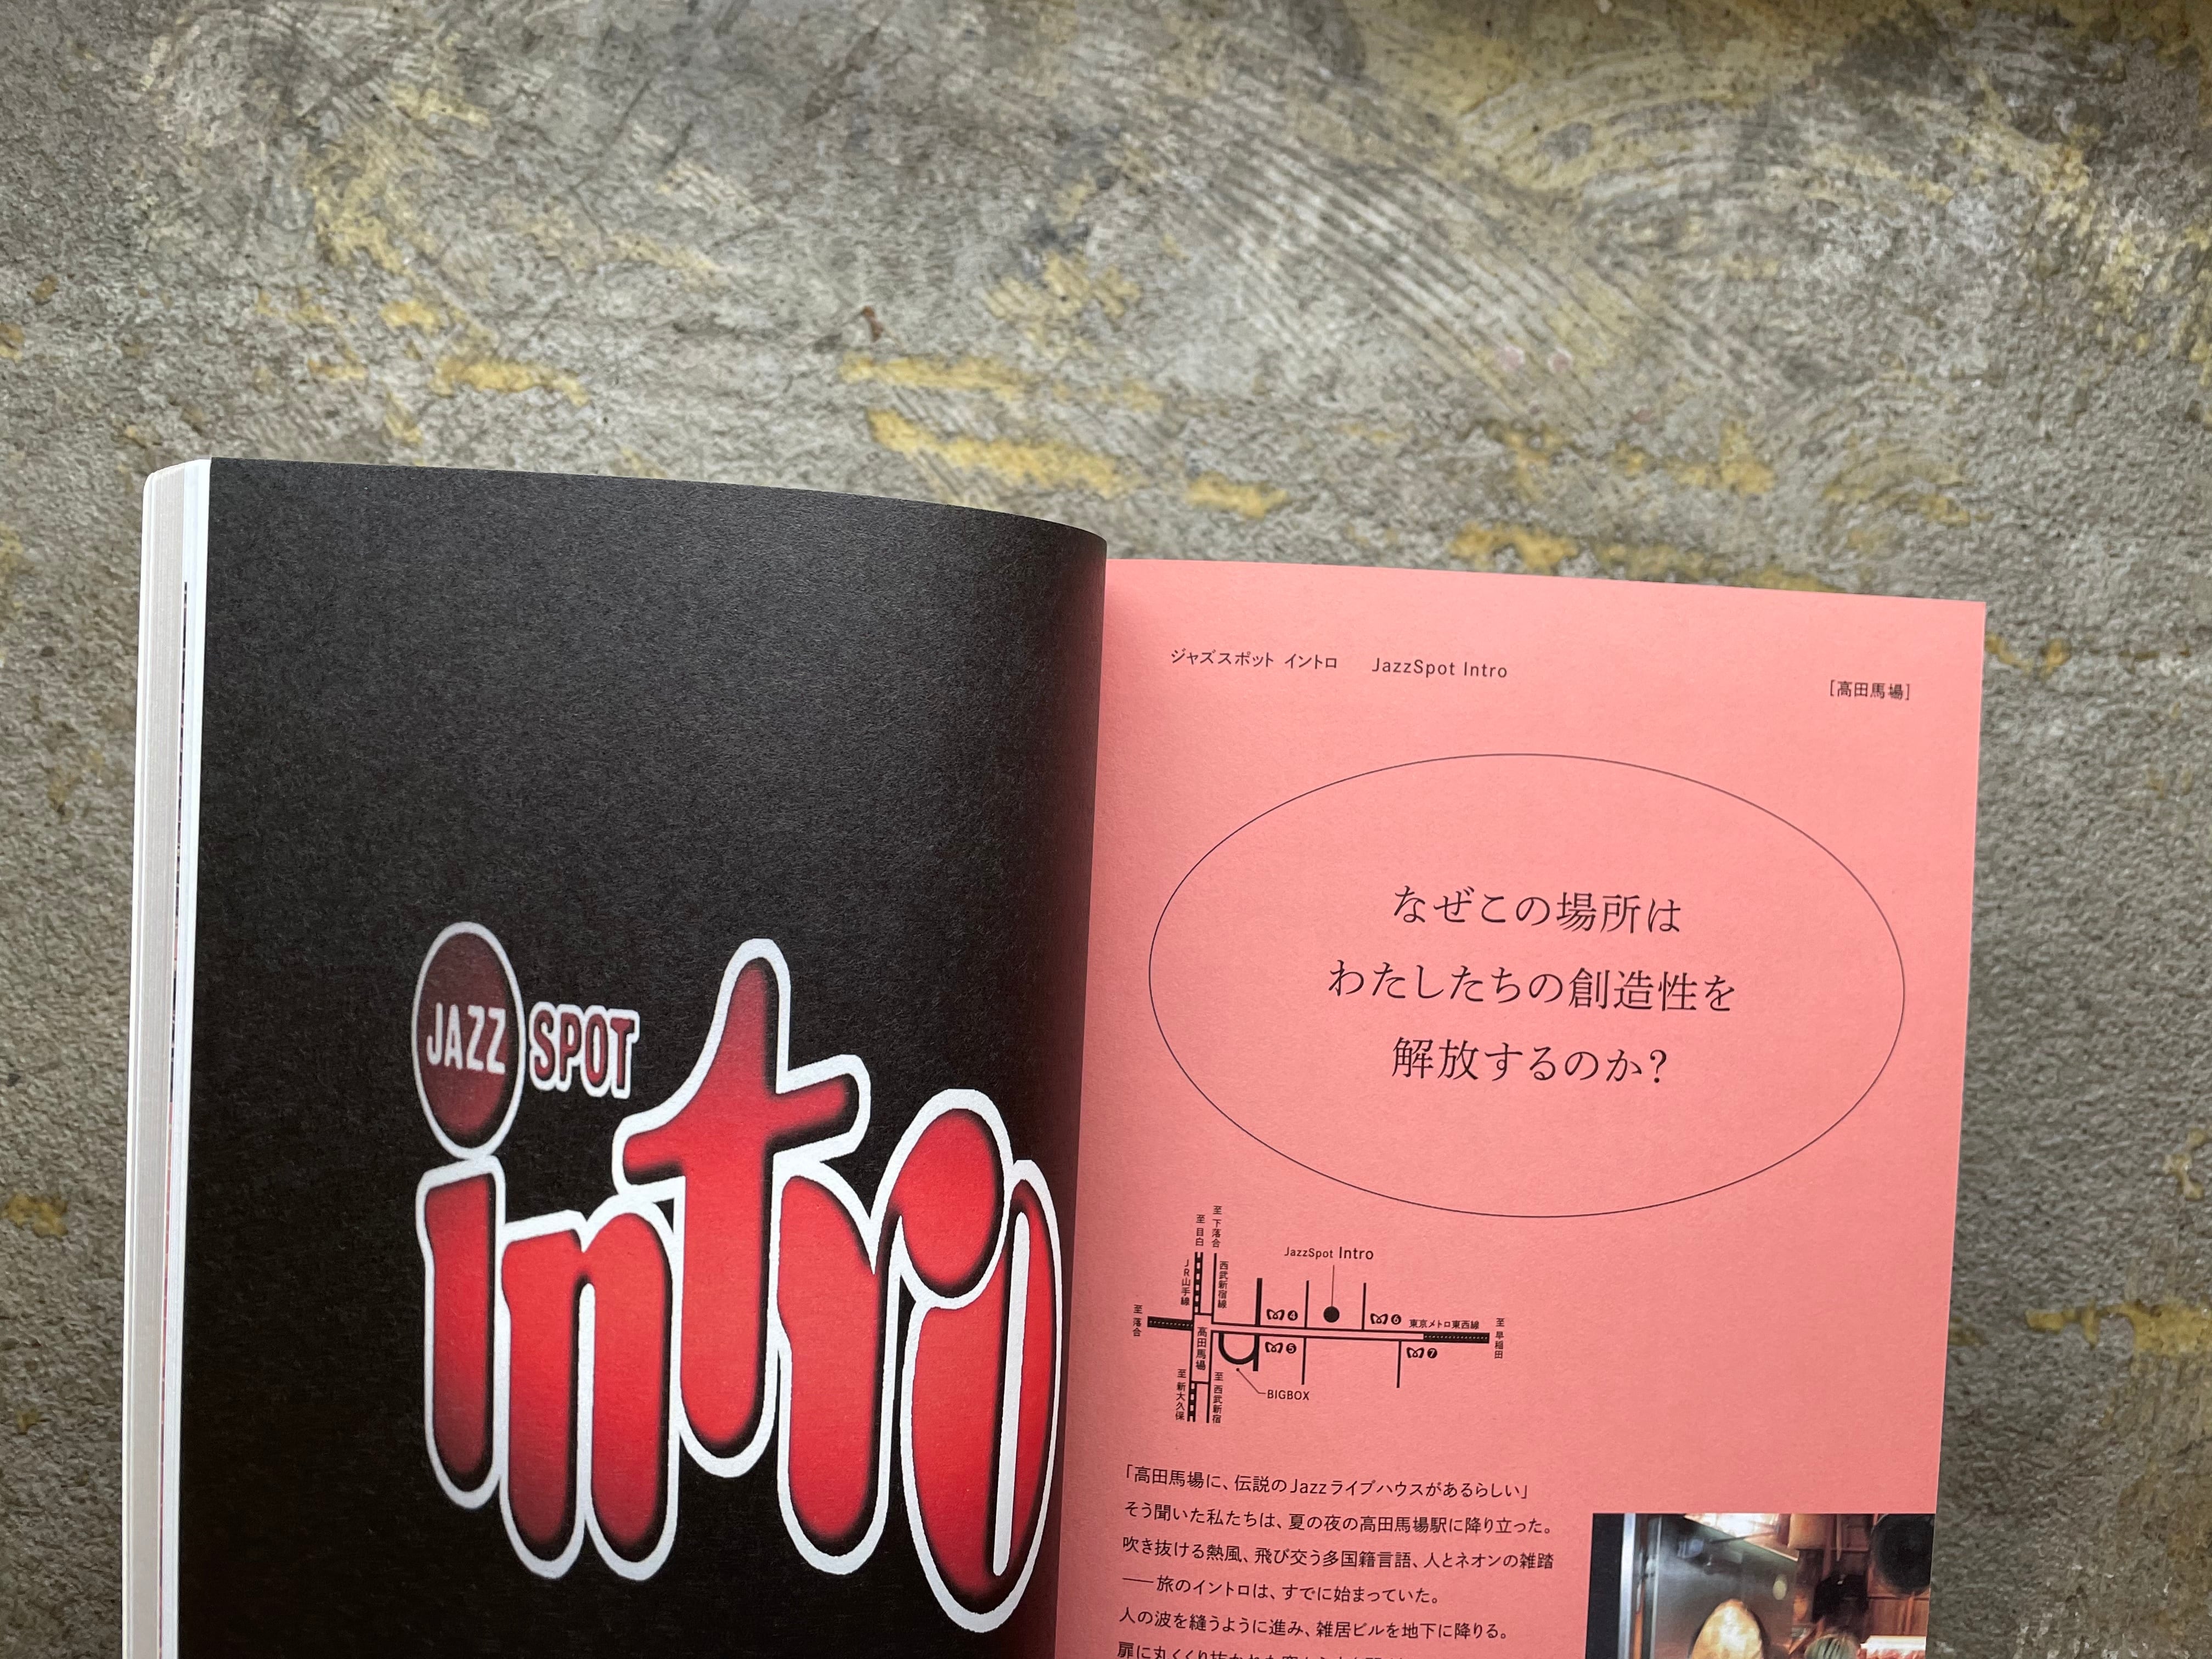 JAZZ SPOT
intro
ジャズスポット イントロ JazzSpot Intro
[高田馬場]
なぜこの場所は
わたしたちの創造性を
解放するのか?
至 目白
至 下落合
JR山手線
西武新宿線
JazzSpot Intro
4
6
東京メトロ東西線
至 落合
至 早稲田
高田馬場
5
7
BIGBOX
至 新大久保
至 西武新宿
「高田馬場に、伝説のJazzライブハウスがあるらしい」
そう聞いた私たちは、夏の夜の高田馬場駅に降り立った。
吹き抜ける熱風、飛び交う多国籍言語、人とネオンの雑踏
——旅のイントロは、すでに始まっていた。
人の波を縫うように進み、雑居ビルを地下に降りる。
扉に丸くくり抜かれた